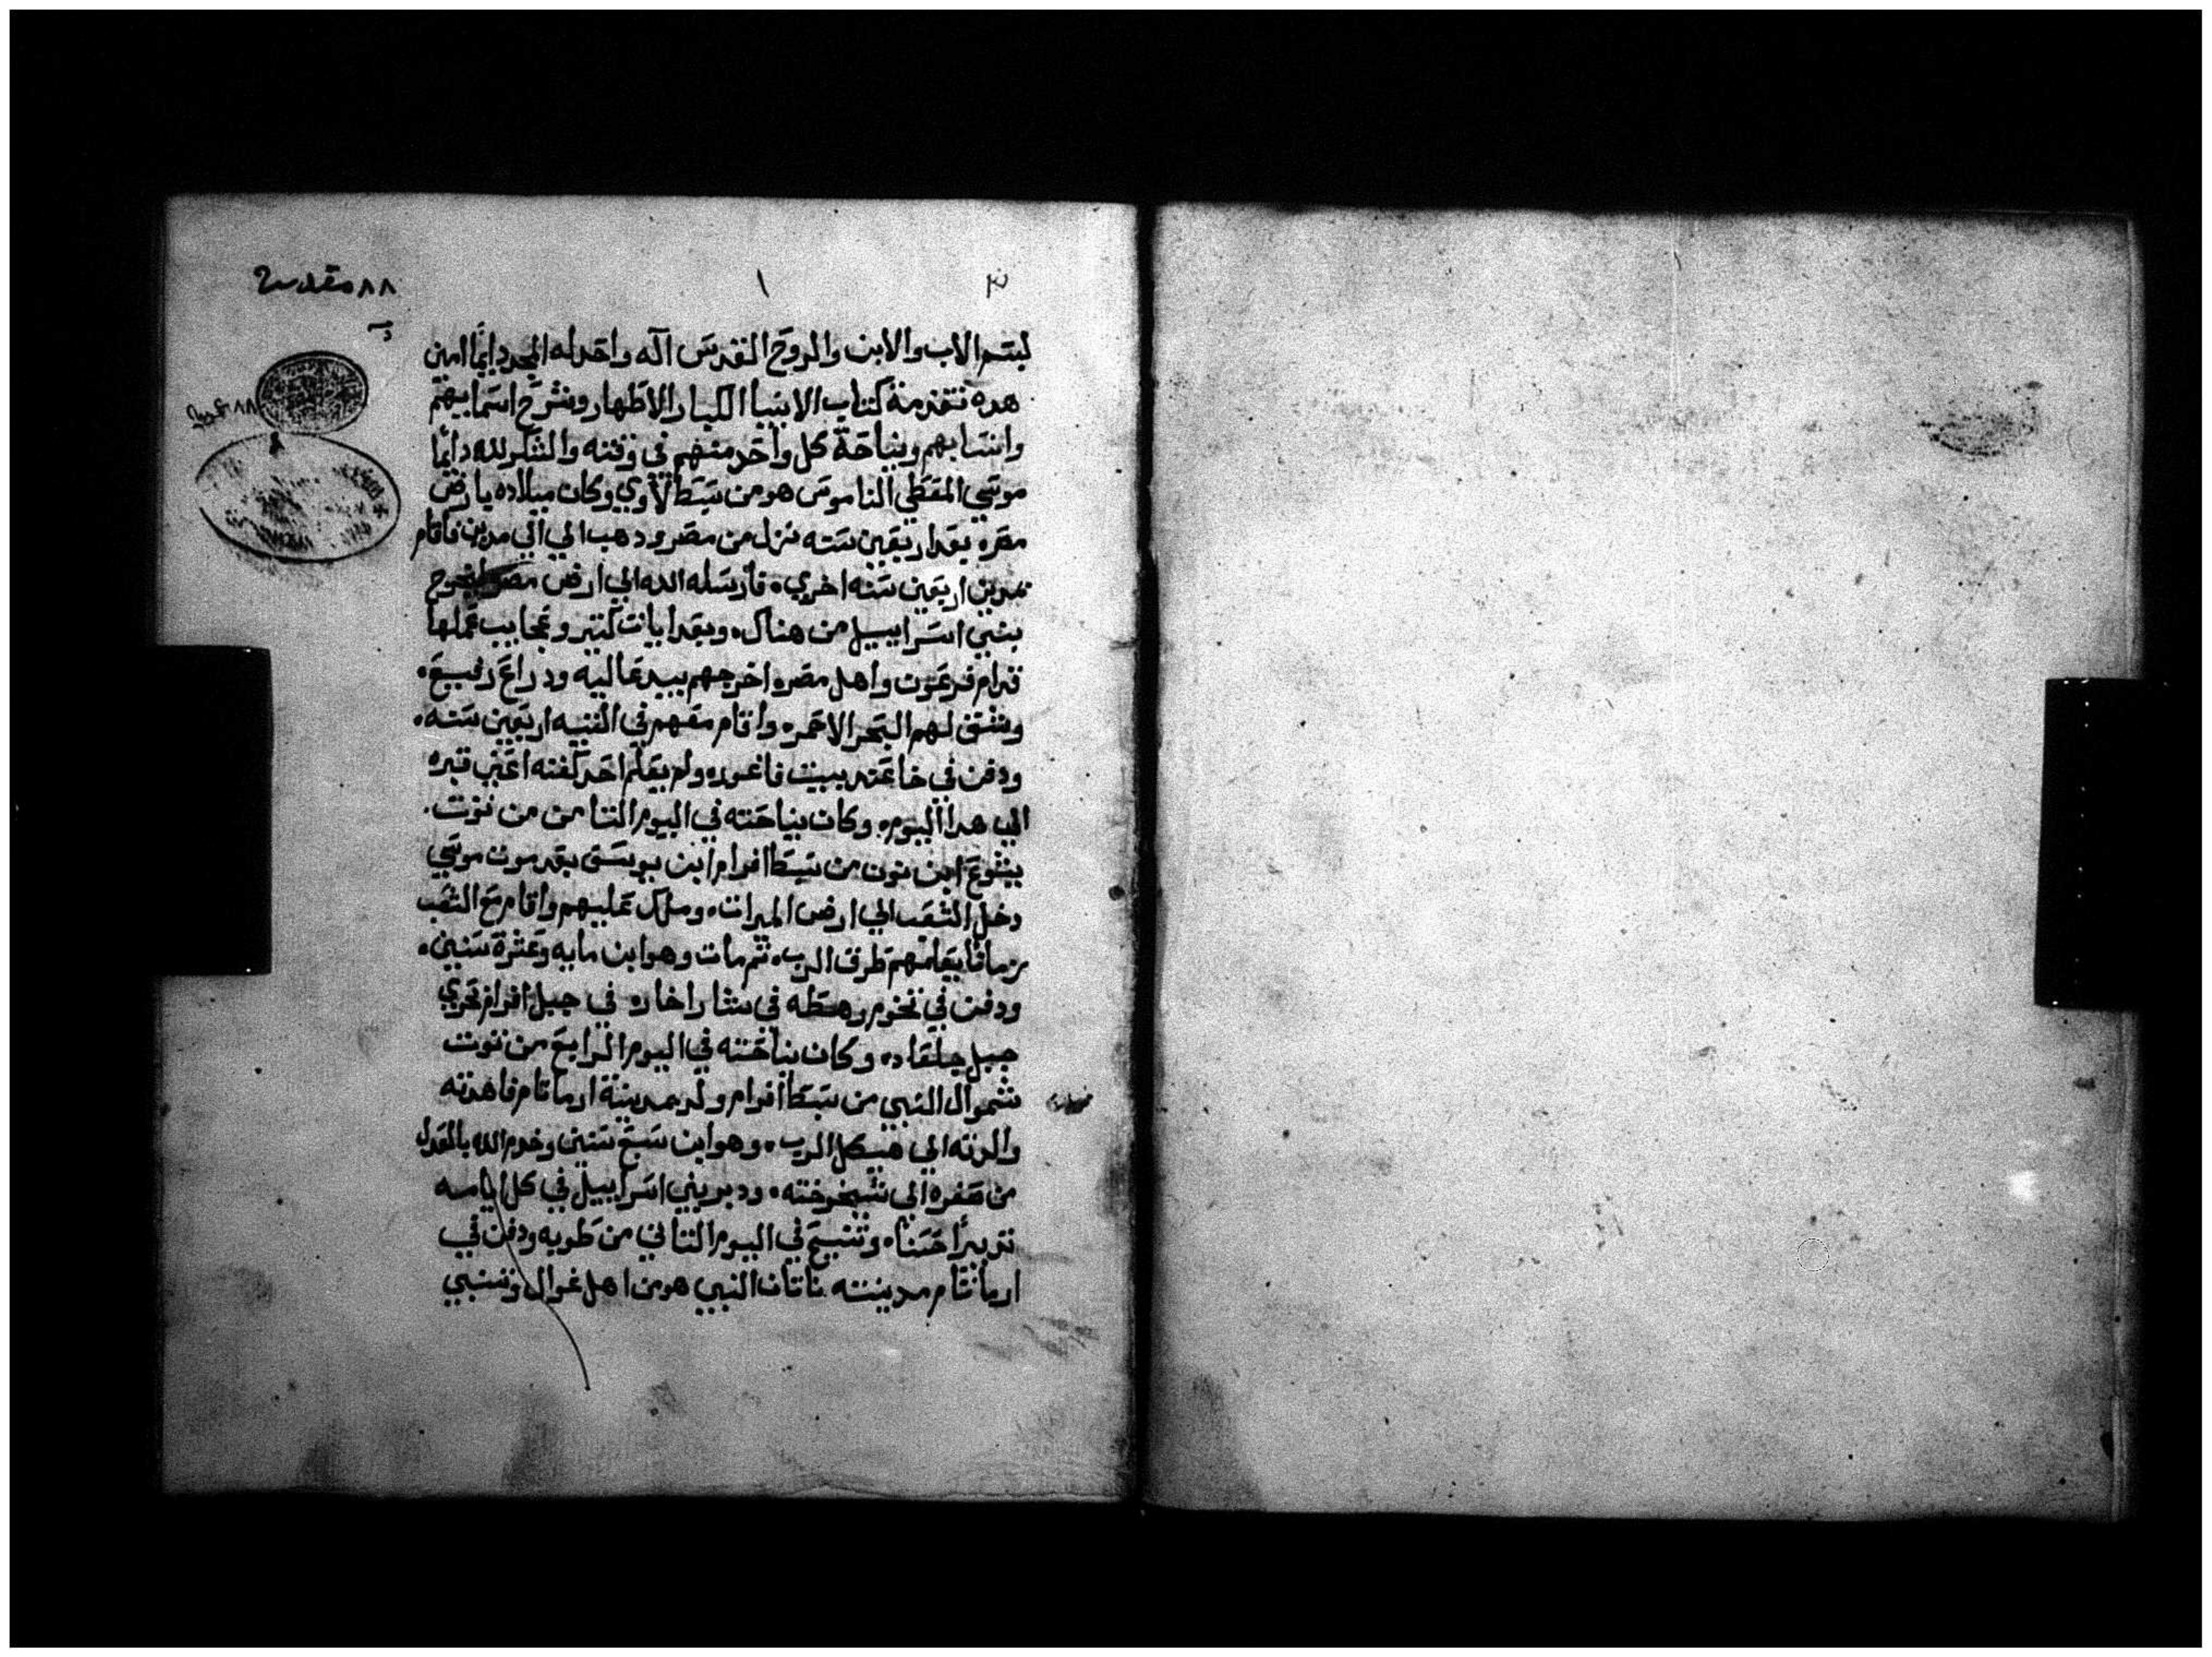 ١
٨٨ مقدسة
بسم الاب والابن والروح القدس اله واحد له المجد دايمًا امين
هده تقدمة كتاب الانبيا الكبار الاطهار وشرح اسماييهم
وانسابهم ونياحة كل واحد منهم في وقته والشكر لله دايمًا
موسي المعطي الناموس هو من سبط لاوي وكان ميلاده بارض
مصره بعد اربعين سنه نزل من مصر ودهب الي الي مدين فاقام
بمدين اربعين سنه اخري. فارسله الله الي ارض مصر ليخرج
بني اسراييل من هناك. وبعد ايات كتير وعجايب عملها
قدام فرعون واهل مصره اخرجهم بيد عاليه ودراع رفيع.
وشق لهم البحر الاحمر. واقام معهم في التيه اربعين سنه.
ودفن في خا عند بيت فاغوره ولم يعلم احد كفنه اعني قبره
الي هدا اليوم. وكان نياحته في اليوم التامن من توت.
يشوع ابن نون من سبط افرام ابن يوسف بعد موت موسي
دخل الشعب الي ارض الميرات. وملك عليهم واقام مع الشعب
زمانًا يعلمهم طرق الرب. تم مات وهو ابن مايه وعشرة سنين.
ودفن في تخوم رهطه في شارا خاره في جبل افرام بحري
جبل جلعاد. وكان نياحته في اليوم الرابع من توت
شموال النبي من سبط افرام ولد بمدينة ارماتام فاهدته
والدته الي هيكل الرب. وهو ابن سبع سنين وخدم الله بالعدل
من صغره الي شيخوخته. ودبر بني اسراييل في كل ايامه
تدبيرًا حسنا. وتنيح في اليوم التاني من طوبه ودفن في
ارماتام مدينته ناتان النبي هو من اهل غوال وسبي